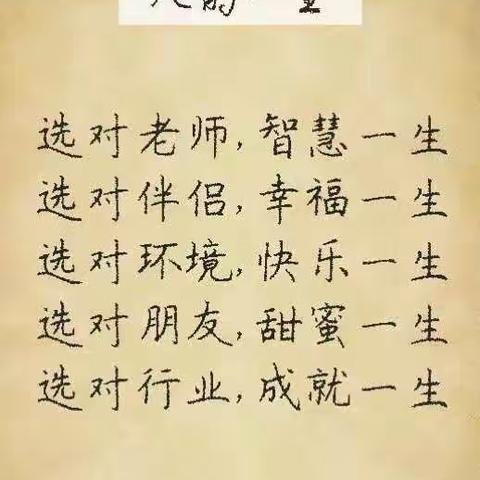 选对老师,智慧一生
选对伴侣,幸福一生
选对环境,快乐一生
选对朋友,甜蜜一生
选对行业,成就一生